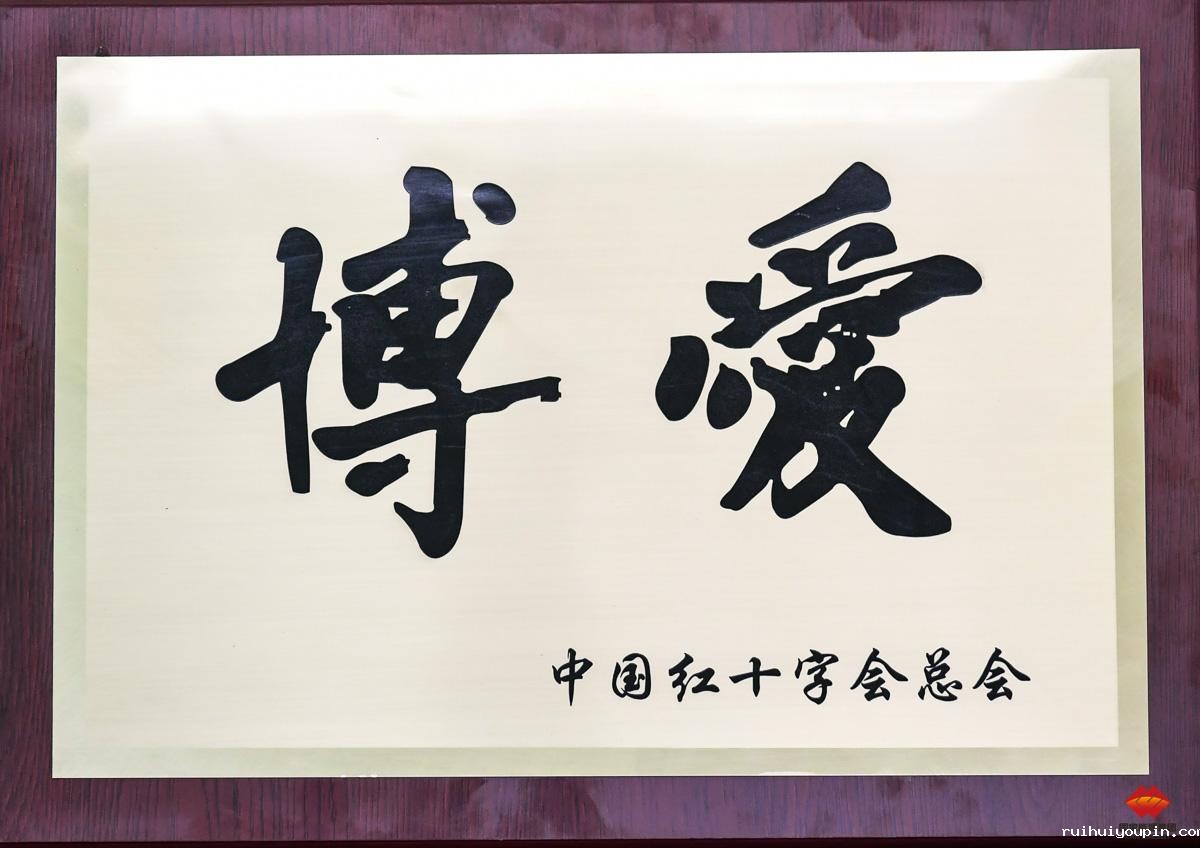 博愛
中国红十字会总会
ruihuiyoupin.co